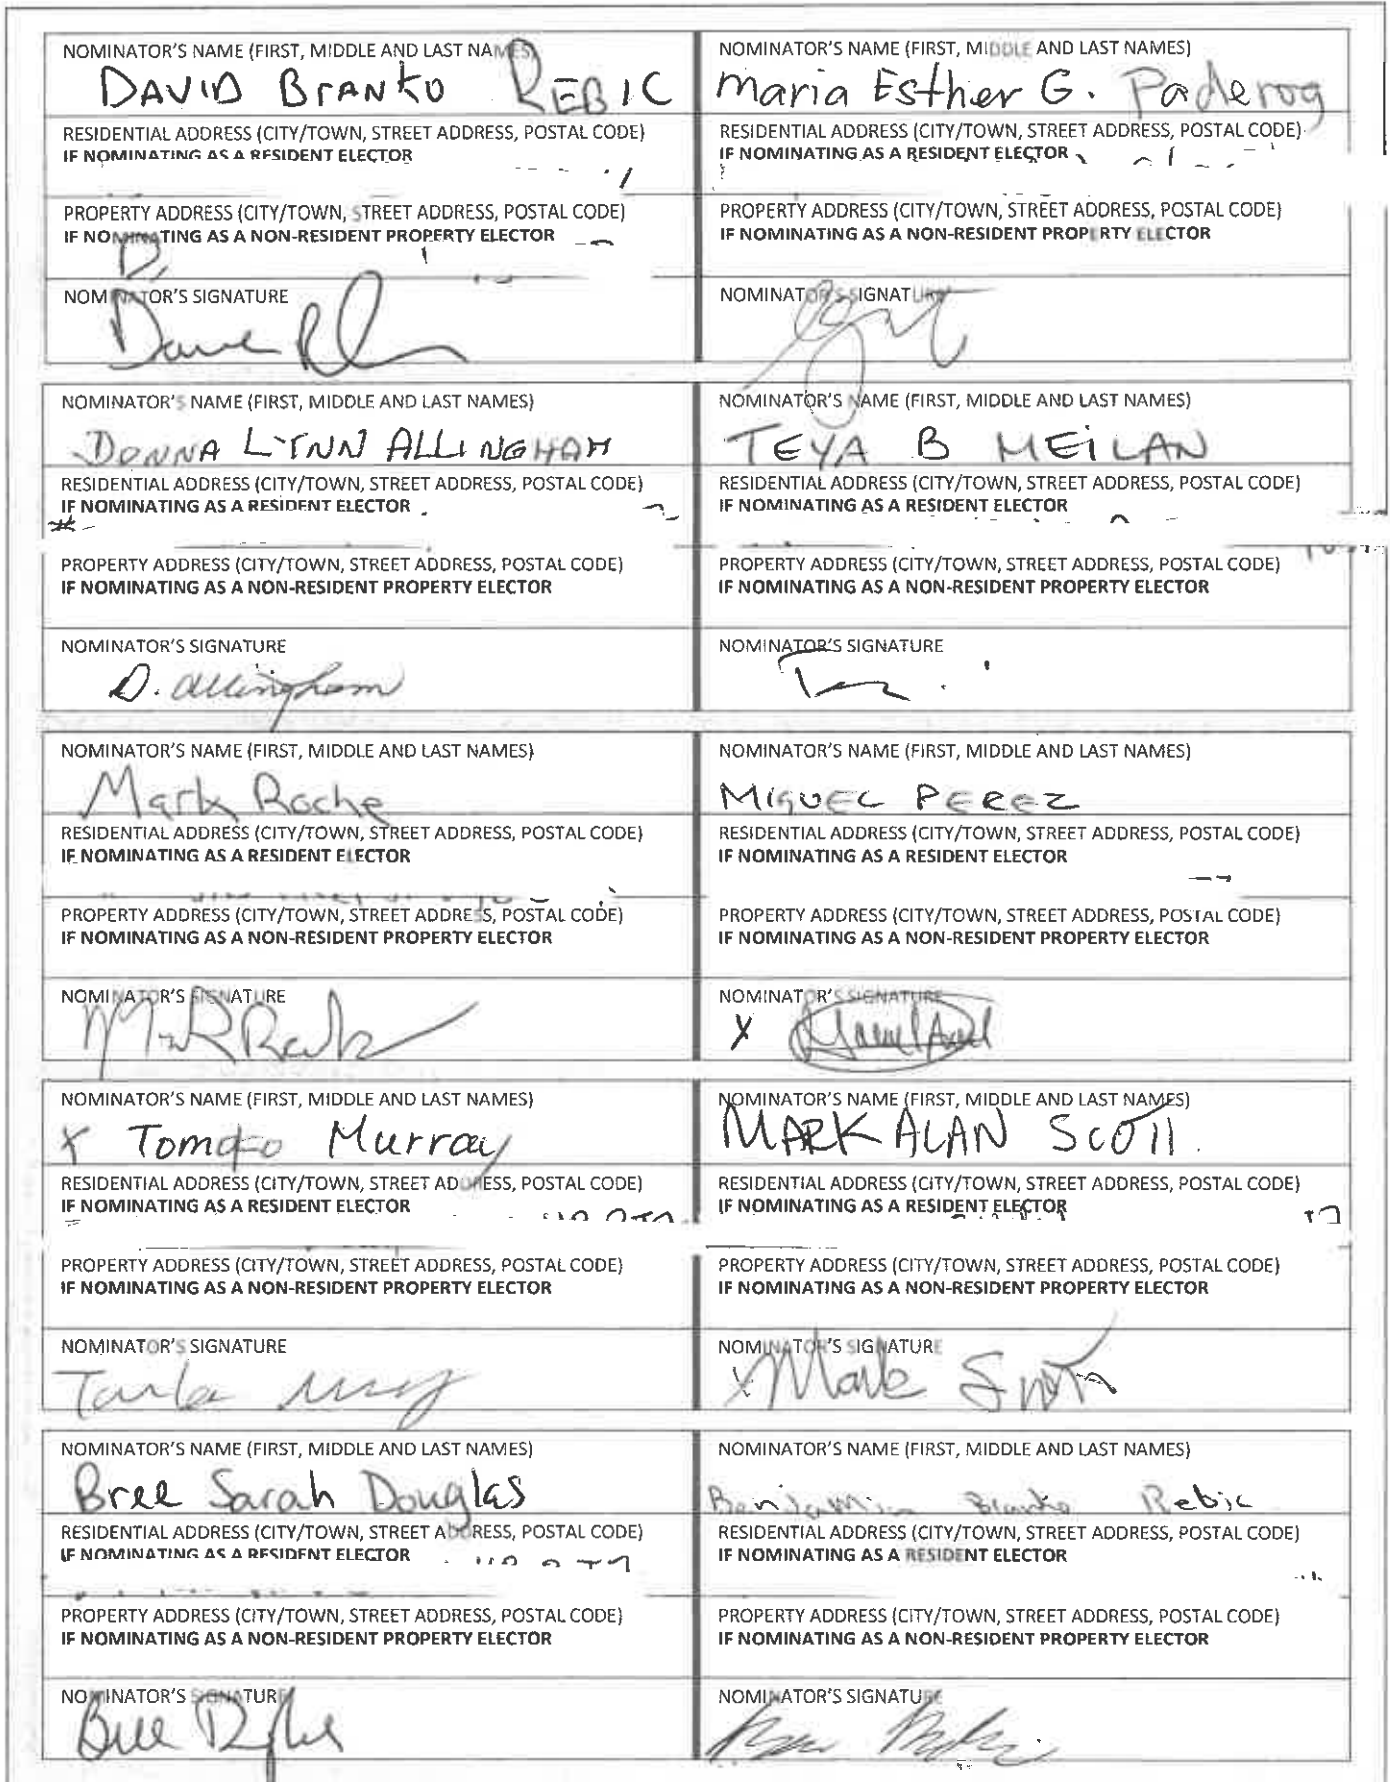 NOMINATOR'S NAME (FIRST, MIDDLE AND LAST NAMES)
DAVID BRANKO REBIC
RESIDENTIAL ADDRESS (CITY/TOWN, STREET ADDRESS, POSTAL CODE)
IF NOMINATING AS A RESIDENT ELECTOR
PROPERTY ADDRESS (CITY/TOWN, STREET ADDRESS, POSTAL CODE)
IF NOMINATING AS A NON-RESIDENT PROPERTY ELECTOR
NOMINATOR'S SIGNATURE
NOMINATOR'S NAME (FIRST, MIDDLE AND LAST NAMES)
Maria Esther G. Paderog
RESIDENTIAL ADDRESS (CITY/TOWN, STREET ADDRESS, POSTAL CODE)
IF NOMINATING AS A RESIDENT ELECTOR
PROPERTY ADDRESS (CITY/TOWN, STREET ADDRESS, POSTAL CODE)
IF NOMINATING AS A NON-RESIDENT PROPERTY ELECTOR
NOMINATOR'S SIGNATURE
NOMINATOR'S NAME (FIRST, MIDDLE AND LAST NAMES)
DONNA LYNN ALLINGHAM
RESIDENTIAL ADDRESS (CITY/TOWN, STREET ADDRESS, POSTAL CODE)
IF NOMINATING AS A RESIDENT ELECTOR
PROPERTY ADDRESS (CITY/TOWN, STREET ADDRESS, POSTAL CODE)
IF NOMINATING AS A NON-RESIDENT PROPERTY ELECTOR
NOMINATOR'S SIGNATURE
D. Allingham
NOMINATOR'S NAME (FIRST, MIDDLE AND LAST NAMES)
TEYA B MEILAN
RESIDENTIAL ADDRESS (CITY/TOWN, STREET ADDRESS, POSTAL CODE)
IF NOMINATING AS A RESIDENT ELECTOR
PROPERTY ADDRESS (CITY/TOWN, STREET ADDRESS, POSTAL CODE)
IF NOMINATING AS A NON-RESIDENT PROPERTY ELECTOR
NOMINATOR'S SIGNATURE
NOMINATOR'S NAME (FIRST, MIDDLE AND LAST NAMES)
Mark Roche
RESIDENTIAL ADDRESS (CITY/TOWN, STREET ADDRESS, POSTAL CODE)
IF NOMINATING AS A RESIDENT ELECTOR
PROPERTY ADDRESS (CITY/TOWN, STREET ADDRESS, POSTAL CODE)
IF NOMINATING AS A NON-RESIDENT PROPERTY ELECTOR
NOMINATOR'S SIGNATURE
NOMINATOR'S NAME (FIRST, MIDDLE AND LAST NAMES)
MIGUEL PEREZ
RESIDENTIAL ADDRESS (CITY/TOWN, STREET ADDRESS, POSTAL CODE)
IF NOMINATING AS A RESIDENT ELECTOR
PROPERTY ADDRESS (CITY/TOWN, STREET ADDRESS, POSTAL CODE)
IF NOMINATING AS A NON-RESIDENT PROPERTY ELECTOR
NOMINATOR'S SIGNATURE
X
NOMINATOR'S NAME (FIRST, MIDDLE AND LAST NAMES)
x Tomoko Murray
RESIDENTIAL ADDRESS (CITY/TOWN, STREET ADDRESS, POSTAL CODE)
IF NOMINATING AS A RESIDENT ELECTOR
PROPERTY ADDRESS (CITY/TOWN, STREET ADDRESS, POSTAL CODE)
IF NOMINATING AS A NON-RESIDENT PROPERTY ELECTOR
NOMINATOR'S SIGNATURE
NOMINATOR'S NAME (FIRST, MIDDLE AND LAST NAMES)
MARK ALAN SCOTT.
RESIDENTIAL ADDRESS (CITY/TOWN, STREET ADDRESS, POSTAL CODE)
IF NOMINATING AS A RESIDENT ELECTOR
PROPERTY ADDRESS (CITY/TOWN, STREET ADDRESS, POSTAL CODE)
IF NOMINATING AS A NON-RESIDENT PROPERTY ELECTOR
NOMINATOR'S SIGNATURE
x Mark Scott
NOMINATOR'S NAME (FIRST, MIDDLE AND LAST NAMES)
Bree Sarah Douglas
RESIDENTIAL ADDRESS (CITY/TOWN, STREET ADDRESS, POSTAL CODE)
IF NOMINATING AS A RESIDENT ELECTOR
PROPERTY ADDRESS (CITY/TOWN, STREET ADDRESS, POSTAL CODE)
IF NOMINATING AS A NON-RESIDENT PROPERTY ELECTOR
NOMINATOR'S SIGNATURE
NOMINATOR'S NAME (FIRST, MIDDLE AND LAST NAMES)
Benjamin Branko Rebic
RESIDENTIAL ADDRESS (CITY/TOWN, STREET ADDRESS, POSTAL CODE)
IF NOMINATING AS A RESIDENT ELECTOR
PROPERTY ADDRESS (CITY/TOWN, STREET ADDRESS, POSTAL CODE)
IF NOMINATING AS A NON-RESIDENT PROPERTY ELECTOR
NOMINATOR'S SIGNATURE